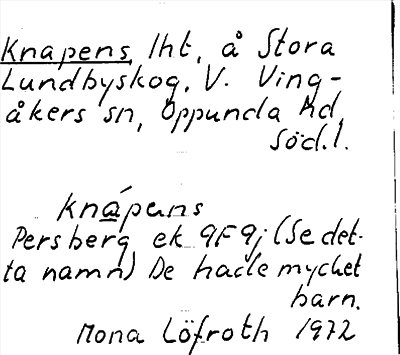 Knapens, lht, å Stora
Lundbyskog, V. Ving-
åkers sn, Oppunda hd,
Söd.l.
knápens
Persberg ek 9F9j (Se det-
ta namn) De hade mycket
barn.
Mona Löfroth 1972